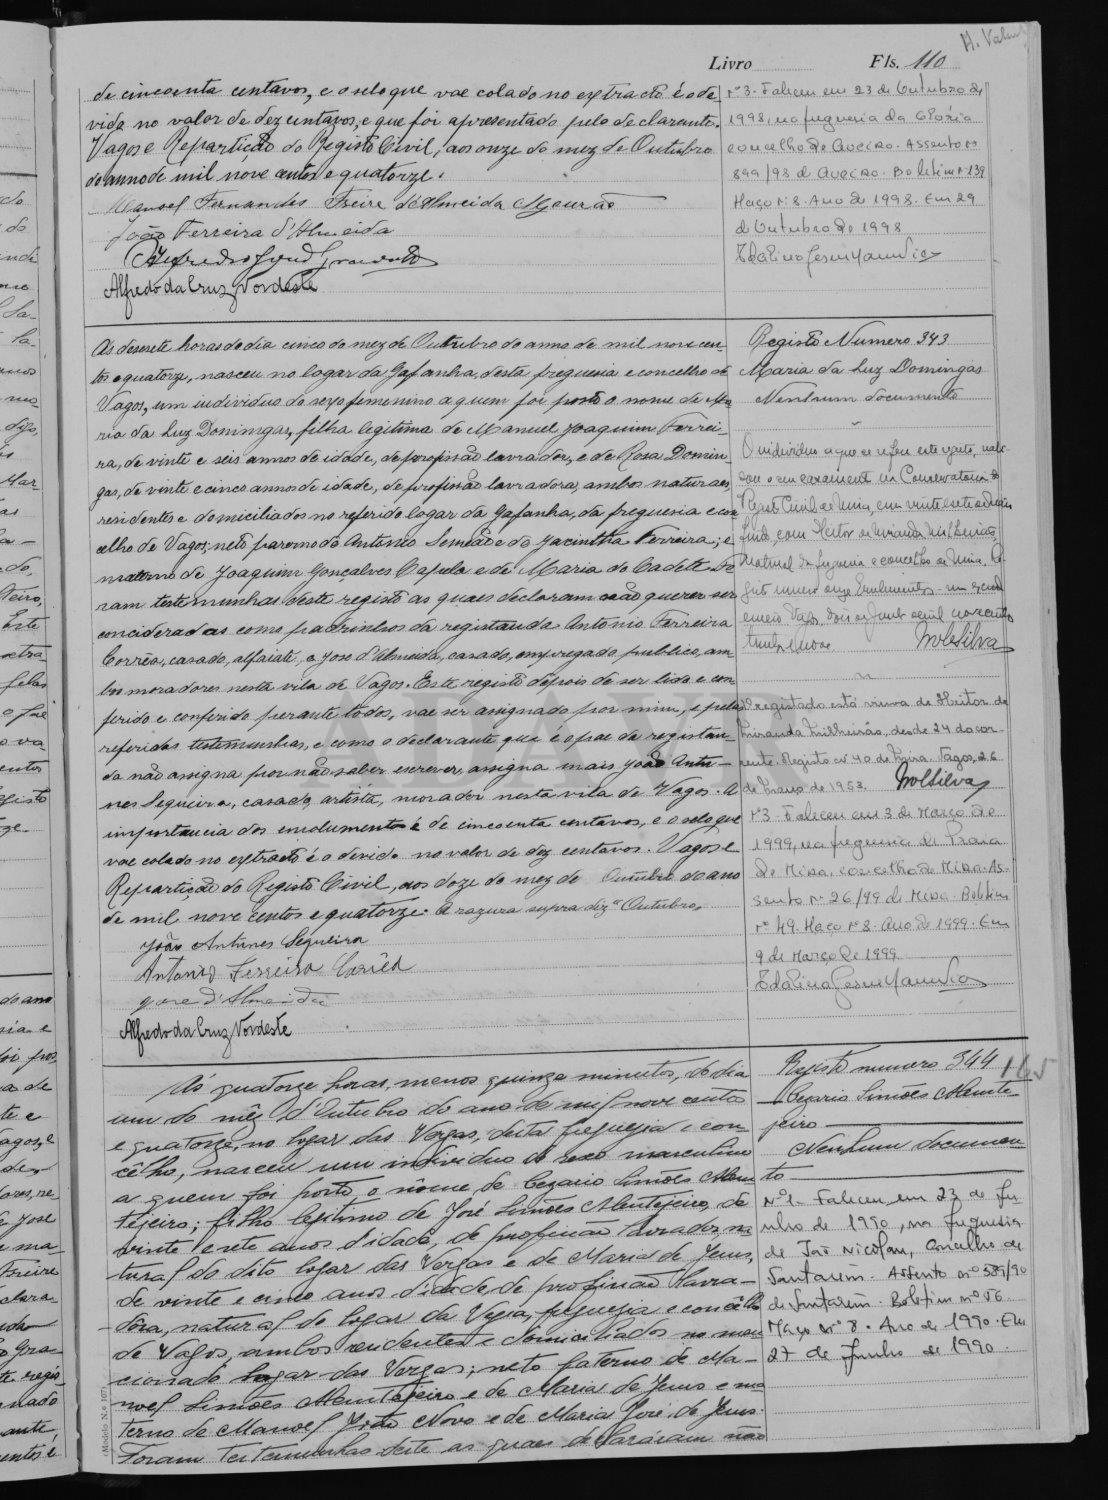 Livro Fls. 110
de cincoenta centavos, e o selo que vae colado no extracto é o de
vido no valor de dez centavos, e que foi apresentado pelo declarante.
Vagos e Repartição do Registo Civil, aos onze do mez de Outubro
do anno de mil nove centos e quatorze.
Manoel Fernandes Freire d'Almeida Mourão
João Ferreira d'Almeida
Alfredo da Cruz Nordeste
Nº 3. Faleceu em 23 de Outubro de
1998, na freguesia da Glória
concelho de Aveiro. Assento nº
899/98 de Aveiro. Boletim nº 139
Maço nº 8. Ano de 1998. Em 29
de Outubro de 1998
As desesete horas do dia cinco do mez de Outubro do anno de mil nove cen-
tos e quatorze, nasceu no logar da Gafanha, desta freguesia e concelho de
Vagos, um individuo do sexo femenino a quem foi posto o nome de Ma-
ria da Luz Domingas, filha legitima de Manuel Joaquim Ferrei-
ra, de vinte e seis annos de idade, de profissão lavrador, e de Rosa Domin-
gas, de vinte e cinco annos de idade, de profissão lavradora, ambos naturaes,
residentes e domiciliados no referido logar da Gafanha, da freguesia e con
celho de Vagos; neto paterno de Antonio Semeão e de Jacintha Ferreira; e
materno de Joaquim Gonçalves Capela e de Maria do Cadete. Fo
ram testemunhas deste registo as quaes declaram não querer ser
concideradas como padrinhos da registanda Antonio Ferreira
Corrêa, casado, alfaiate, e José d'Almeida, casado, empregado publico, am-
bos moradores nesta vila de Vagos. Este registo depois de ser lido e con
ferido e conferido perante todos, vae ser assignado por mim, e pelas
referidas testemunhas, e como o declarante que é o pae da registan-
da não assigna por não saber escrever, assigna mais João Antu-
nes Sequeira, casado, artista, morador nesta vila de Vagos. A
importancia dos emolumentos é de cincoenta centavos, e o selo que
vae colado no extracto é o devido no valor de dez centavos. Vagos e
Repartição do Registo Civil, aos doze do mez de Outubro do ano
de mil nove centos e quatorze. A razura supra diz "Outubro.
João Antunes Sequeira
Antonio Ferreira Corrêa
José d'Almeida
Alfredo da Cruz Nordeste
Registo Numero 343
Maria da Luz Domingas
Nenhum documento
O individuo a que se refere este registo, cele-
brou o seu casamento na Conservatoria do
Registo Civil de Mira, em vinte e sete
findo, com Heitor de Miranda Milheirão,
natural da freguesia e concelho de Mira. Re-
gisto numero onze. Emolumentos um escudo
trinta e nove MolSilva
O registado está viuva de Heitor de
Miranda Milheirão, desde 24 do cor-
rente. Registo nº 40 de Mira. Vagos, 26
de Março de 1953. MolSilva
Nº 3. Faleceu em 3 de Março de
1999, na freguesia de Praia
de Mira, concelho de Mira. As-
sento nº 26/99 de Mira. Boletim
nº 49. Maço nº 8. Ano de 1999. Em
9 de Março de 1999
Ás quatorze horas, menos quinze minutos, do dia
um do mêz d'Outubro do ano de mil nove centos
e quatorze, no logar das Vergas, desta freguezia e con-
cêlho, nasceu um individuo do sexo masculino
a quem foi posto o nome de Cezario Simões Alem-
tejeiro; filho legitimo de José Simões Alemtejeiro, de
vinte e sete anos d'idade, de profissão lavrador, na-
tural do dito logar das Vergas e de Maria de Jesus,
de vinte e cinco anos d'idade, de profissão lavra-
dora, natural do logar da Vigia, freguezia e concêlho
de Vagos, ambos residentes e domiciliados no men
cionado logar das Vergas; neto paterno de Ma-
noel Simões Alemtejeiro e de Maria de Jesus e ma
terno de Manoel João Novo e de Maria José de Jesus.
Foram testemunhas deste as quaes declararam não
Registo numero 344
165
Cezario Simões Alemte-
jeiro
Nenhum documen-
to
Nº 1 - Faleceu em 23 de Ju-
nho de 1990, na freguesia
de São Nicolau, concelho de
Santarém. Assento nº 589/90
de Santarém. Boletim nº 56
Maço nº 8. Ano de 1990. Em
27 de Junho de 1990.